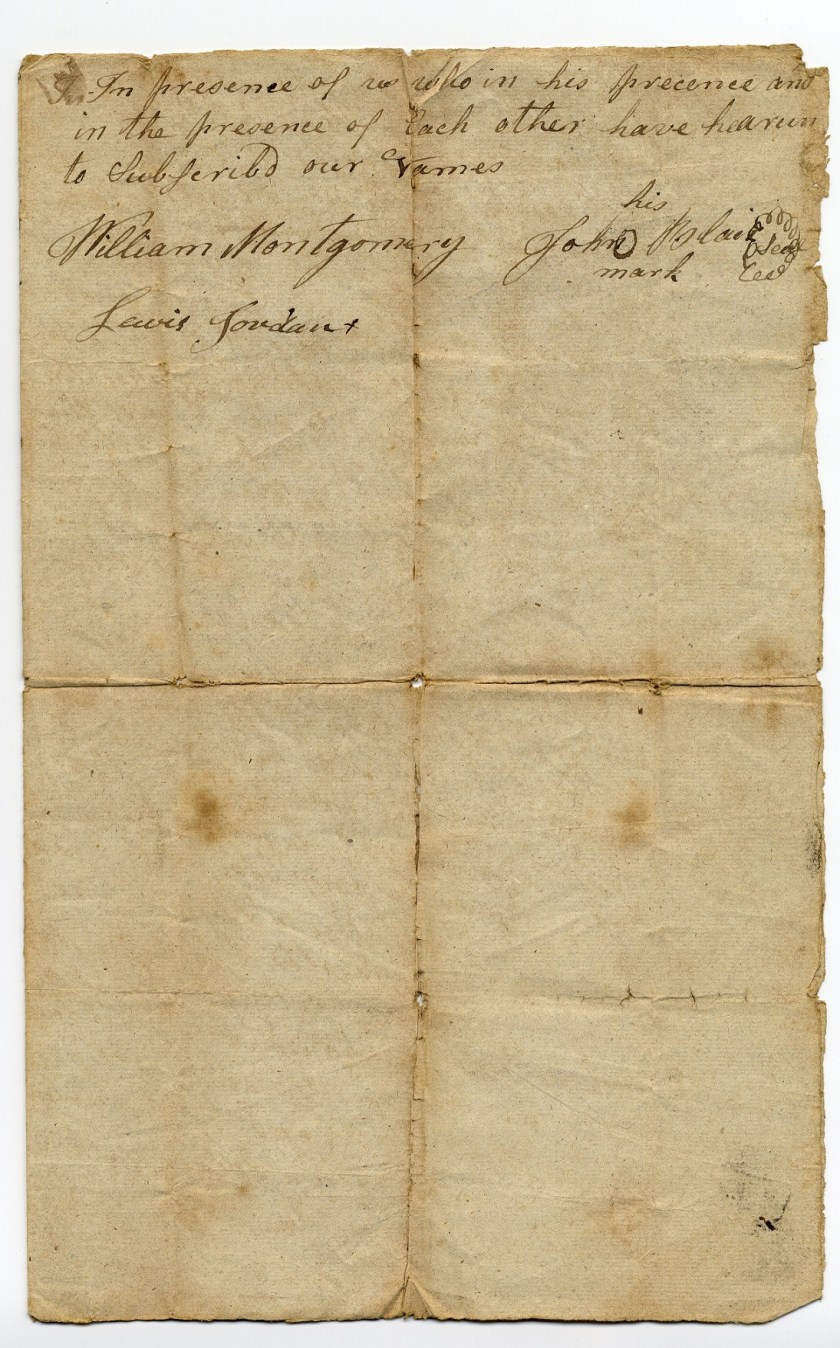 In presence of us who in his precence and
in the presence of Each other have hearun
to Subscribd our Names
his
William Montgomery John O Blair Seal
mark
Lewis Jordan +